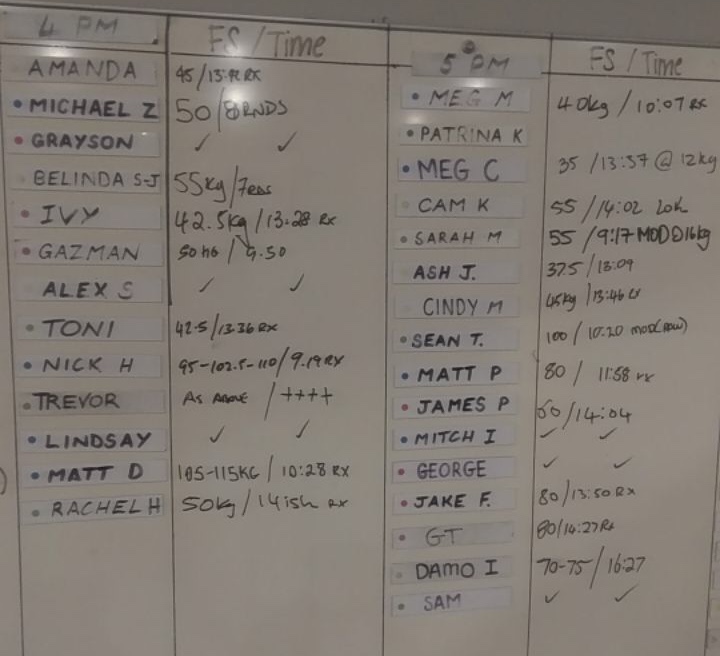 4 PM FS/Time
AMANDA 45/13:
MICHAEL Z 50/8RNDS
GRAYSON ✓ ✓
BELINDA S-J 55kg/
IVY 42.5kg/13:28 RX
GAZMAN 9.50
ALEX S ✓ ✓
TONI 42.5/13.36 RX
NICK H 95-102.5-110/9.19 RX
TREVOR AS ABOVE /++++
LINDSAY ✓ ✓
MATT D 105-115KG / 10:28 RX
RACHEL H 50kg/14ish RX
5 PM FS/Time
MEG M 40kg / 10:07 RX
PATRINA K
MEG C 35 /13:37 @ 12kg
CAM K 55 /14:02
SARAH M 55 /9:17 MOD@16kg
ASH J. 37.5/13:09
CINDY M 45kg /13:46
SEAN T. 100/10.20 mod(row)
MATT P 80 / 11:58 rx
JAMES P 60/14:04
MITCH I ✓ ✓
GEORGE ✓ ✓
JAKE F. 80/13:50 RX
GT 80/14:27 RX
DAMO I 70-75/16:27
SAM ✓ ✓